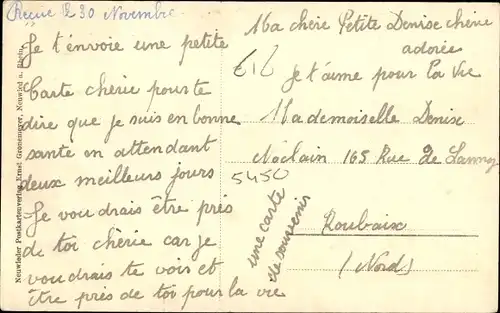 Reçue le 30 Novembre
Je t'envoie une petite
Carte chérie pour te
dire que je suis en bonne
santé en attendant
deux meilleurs jours
Je voudrais être près
de toi chérie car je
voudrais te voir et
être près de toi pour la vie
Ma chère Petite Denise chérie
adorée
je t'aime pour la vie
Mademoiselle Denise
165 Rue de Lannoy
Roubaix
(Nord)
5450
une carte
de souvenir
Neuwieder Postkartenverlag Ernst Gronemeyer, Neuwied a. Rhein